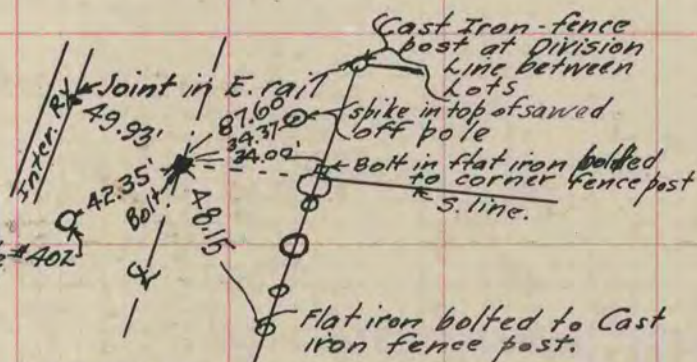 Cast Iron-fence
post at Division
Line between
Lots
Joint in E. rail
Inter. Ry.
49.93'
87.60
34.37
34.00'
spike in top of sawed
off pole
Bolt in flat iron bolted
to corner fence post
S. line.
42.35'
Bolt
48.15
#402
Flat iron bolted to Cast
iron fence post.